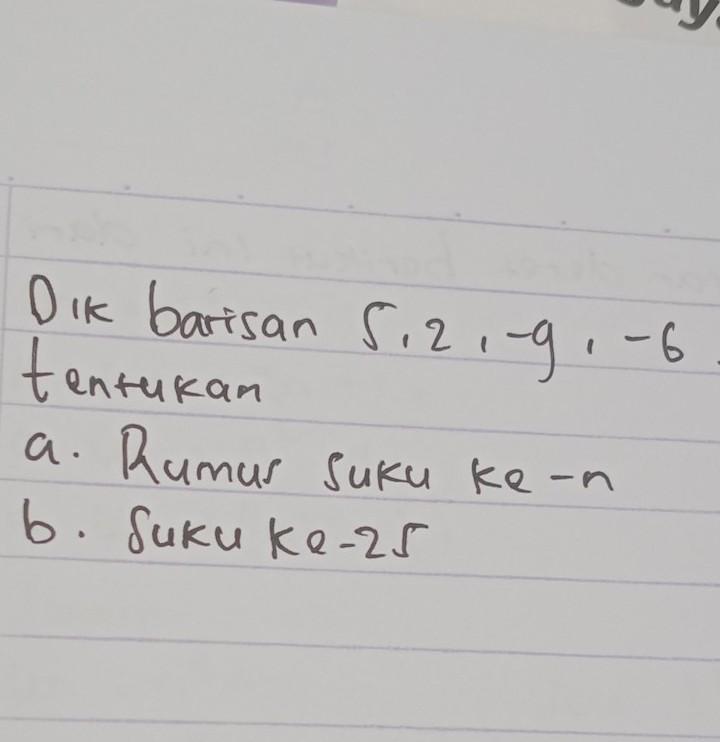 Dik barisan 5, 2, -9, -6
tentukan
a. Rumus suku ke-n
b. Suku ke-25